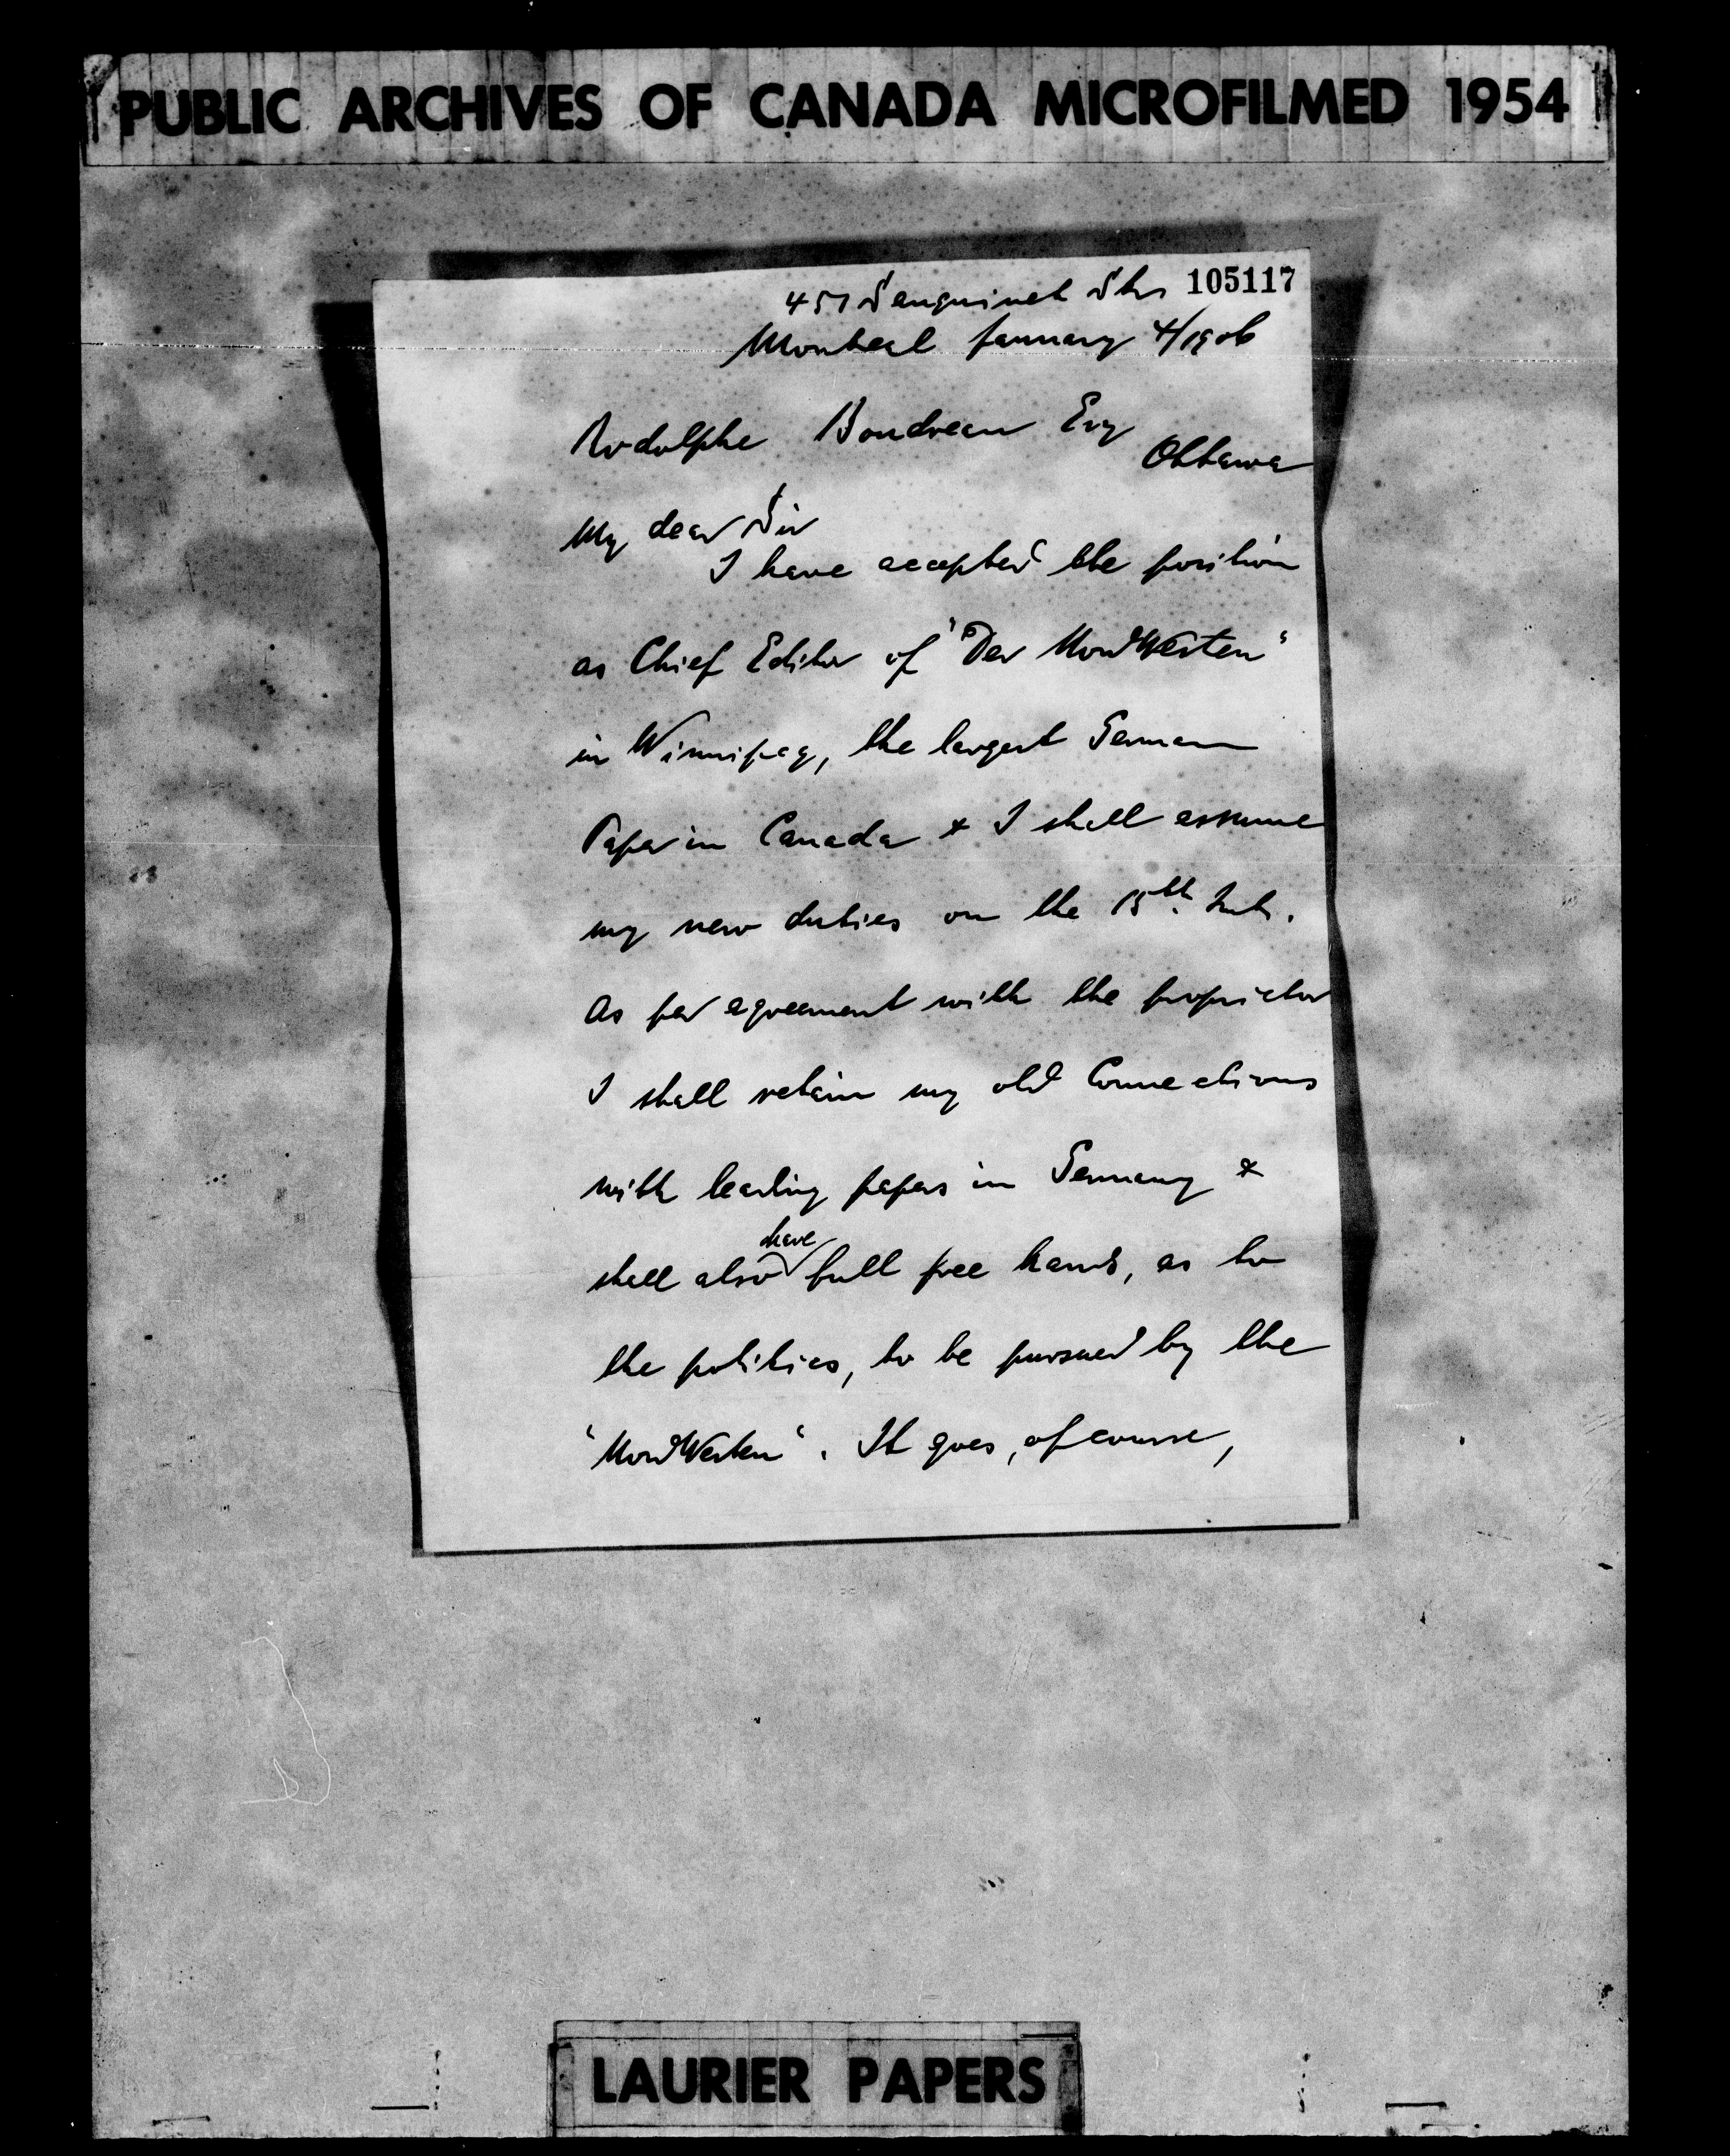 PUBLIC ARCHIVES OF CANADA MICROFILMED 1954
105117
451 Sanguinet Str
Montreal January 4/1906
Rodolphe Boudreau Esq
Ottawa
My dear Sir
I have accepted the position
as Chief Editor of "Der NordWesten"
in Winnipeg, the largest German
Paper in Canada & I shall assume
my new duties on the 15th. Inst.
As per agreement with the proprietor
I shall retain my old Connections
with leading papers in Germany &
shall also have full free hand, as to
the politics, to be pursued by the
"NordWesten". It goes, of course,
LAURIER PAPERS